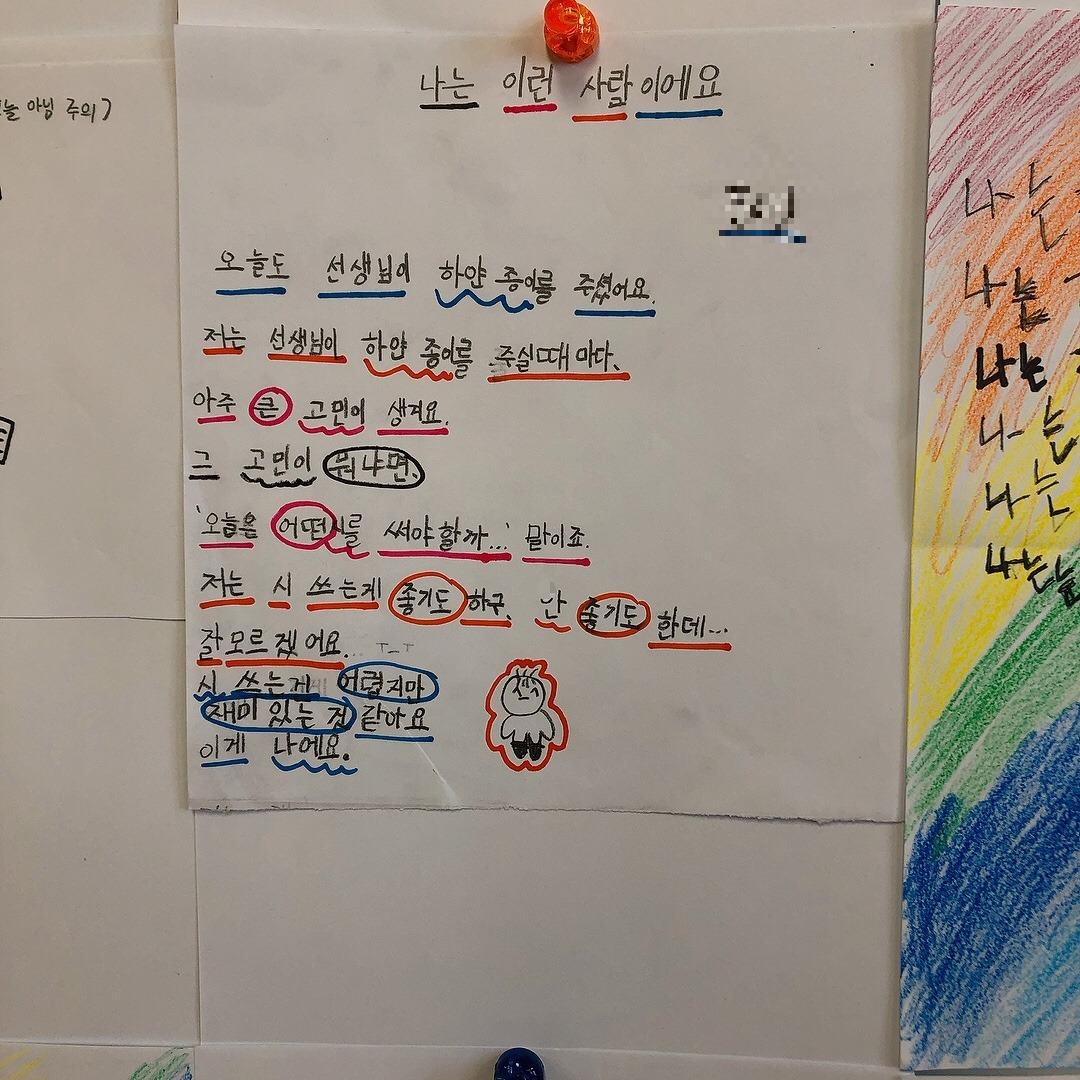 나는 이런 사람이에요
오늘도 선생님이 하얀 종이를 주셨어요.
저는 선생님이 하얀 종이를 주실때 마다.
아주 큰 고민이 생겨요.
그 고민이 뭐냐면.
'오늘은 어떤시를 써야 할까...' 말이죠.
저는 시 쓰는게 좋기도 하구. 안 좋기도 한데...
잘모르겠어요... T_T
시 쓰는게 어렵지만
재미 있는 것 같아요
이게 나에요.
아님 주의)
나는
나는
나는
나는
나는
나는